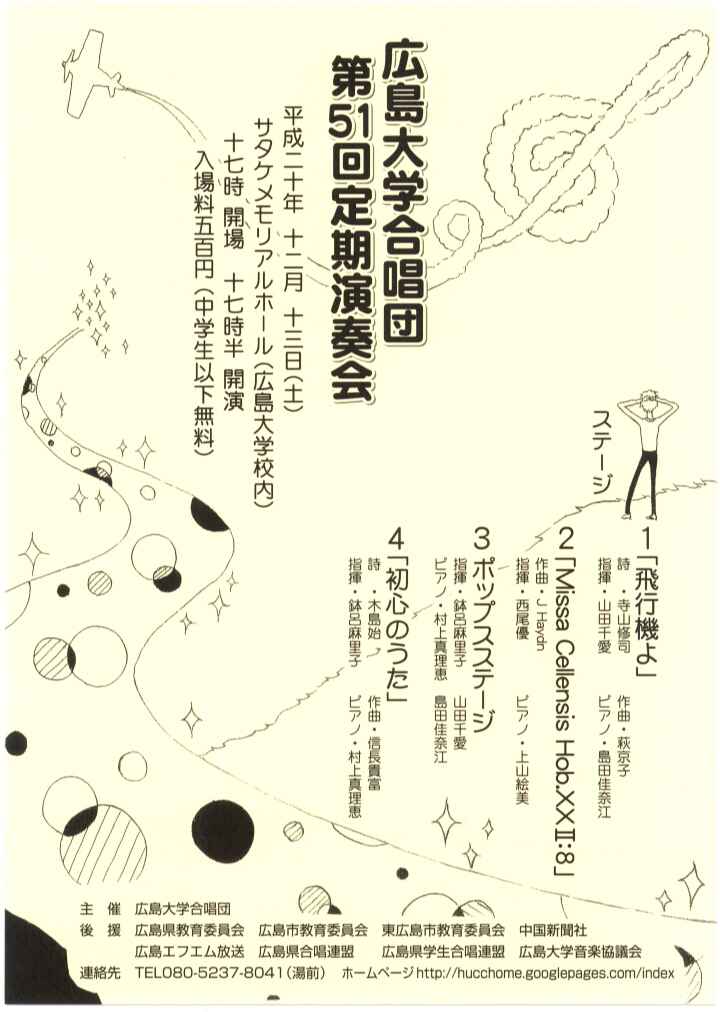 広島大学合唱団
第51回定期演奏会
平成二十年 十二月 十三日(土)
サタケメモリアルホール(広島大学校内)
十七時 開場 十七時半 開演
入場料五百円(中学生以下無料)
ステージ
1「飛行機よ」
詩・寺山修司 作曲・萩京子
指揮・山田千愛 ピアノ・島田佳奈江
2「Missa Cellensis Hob.XXⅡ:8」
作曲・J.Haydn
指揮・西尾優 ピアノ・上山絵美
3 ポップスステージ
指揮・鉢呂麻里子 山田千愛
ピアノ・村上真理恵 島田佳奈江
4「初心のうた」
詩・木島始 作曲・信長貴富
指揮・鉢呂麻里子 ピアノ・村上真理恵
主 催 広島大学合唱団
後 援 広島県教育委員会 広島市教育委員会 東広島市教育委員会 中国新聞社
広島エフエム放送 広島県合唱連盟 広島県学生合唱連盟 広島大学音楽協議会
連絡先 TEL080-5237-8041(湯前) ホームページhttp://hucchome.googlepages.com/index